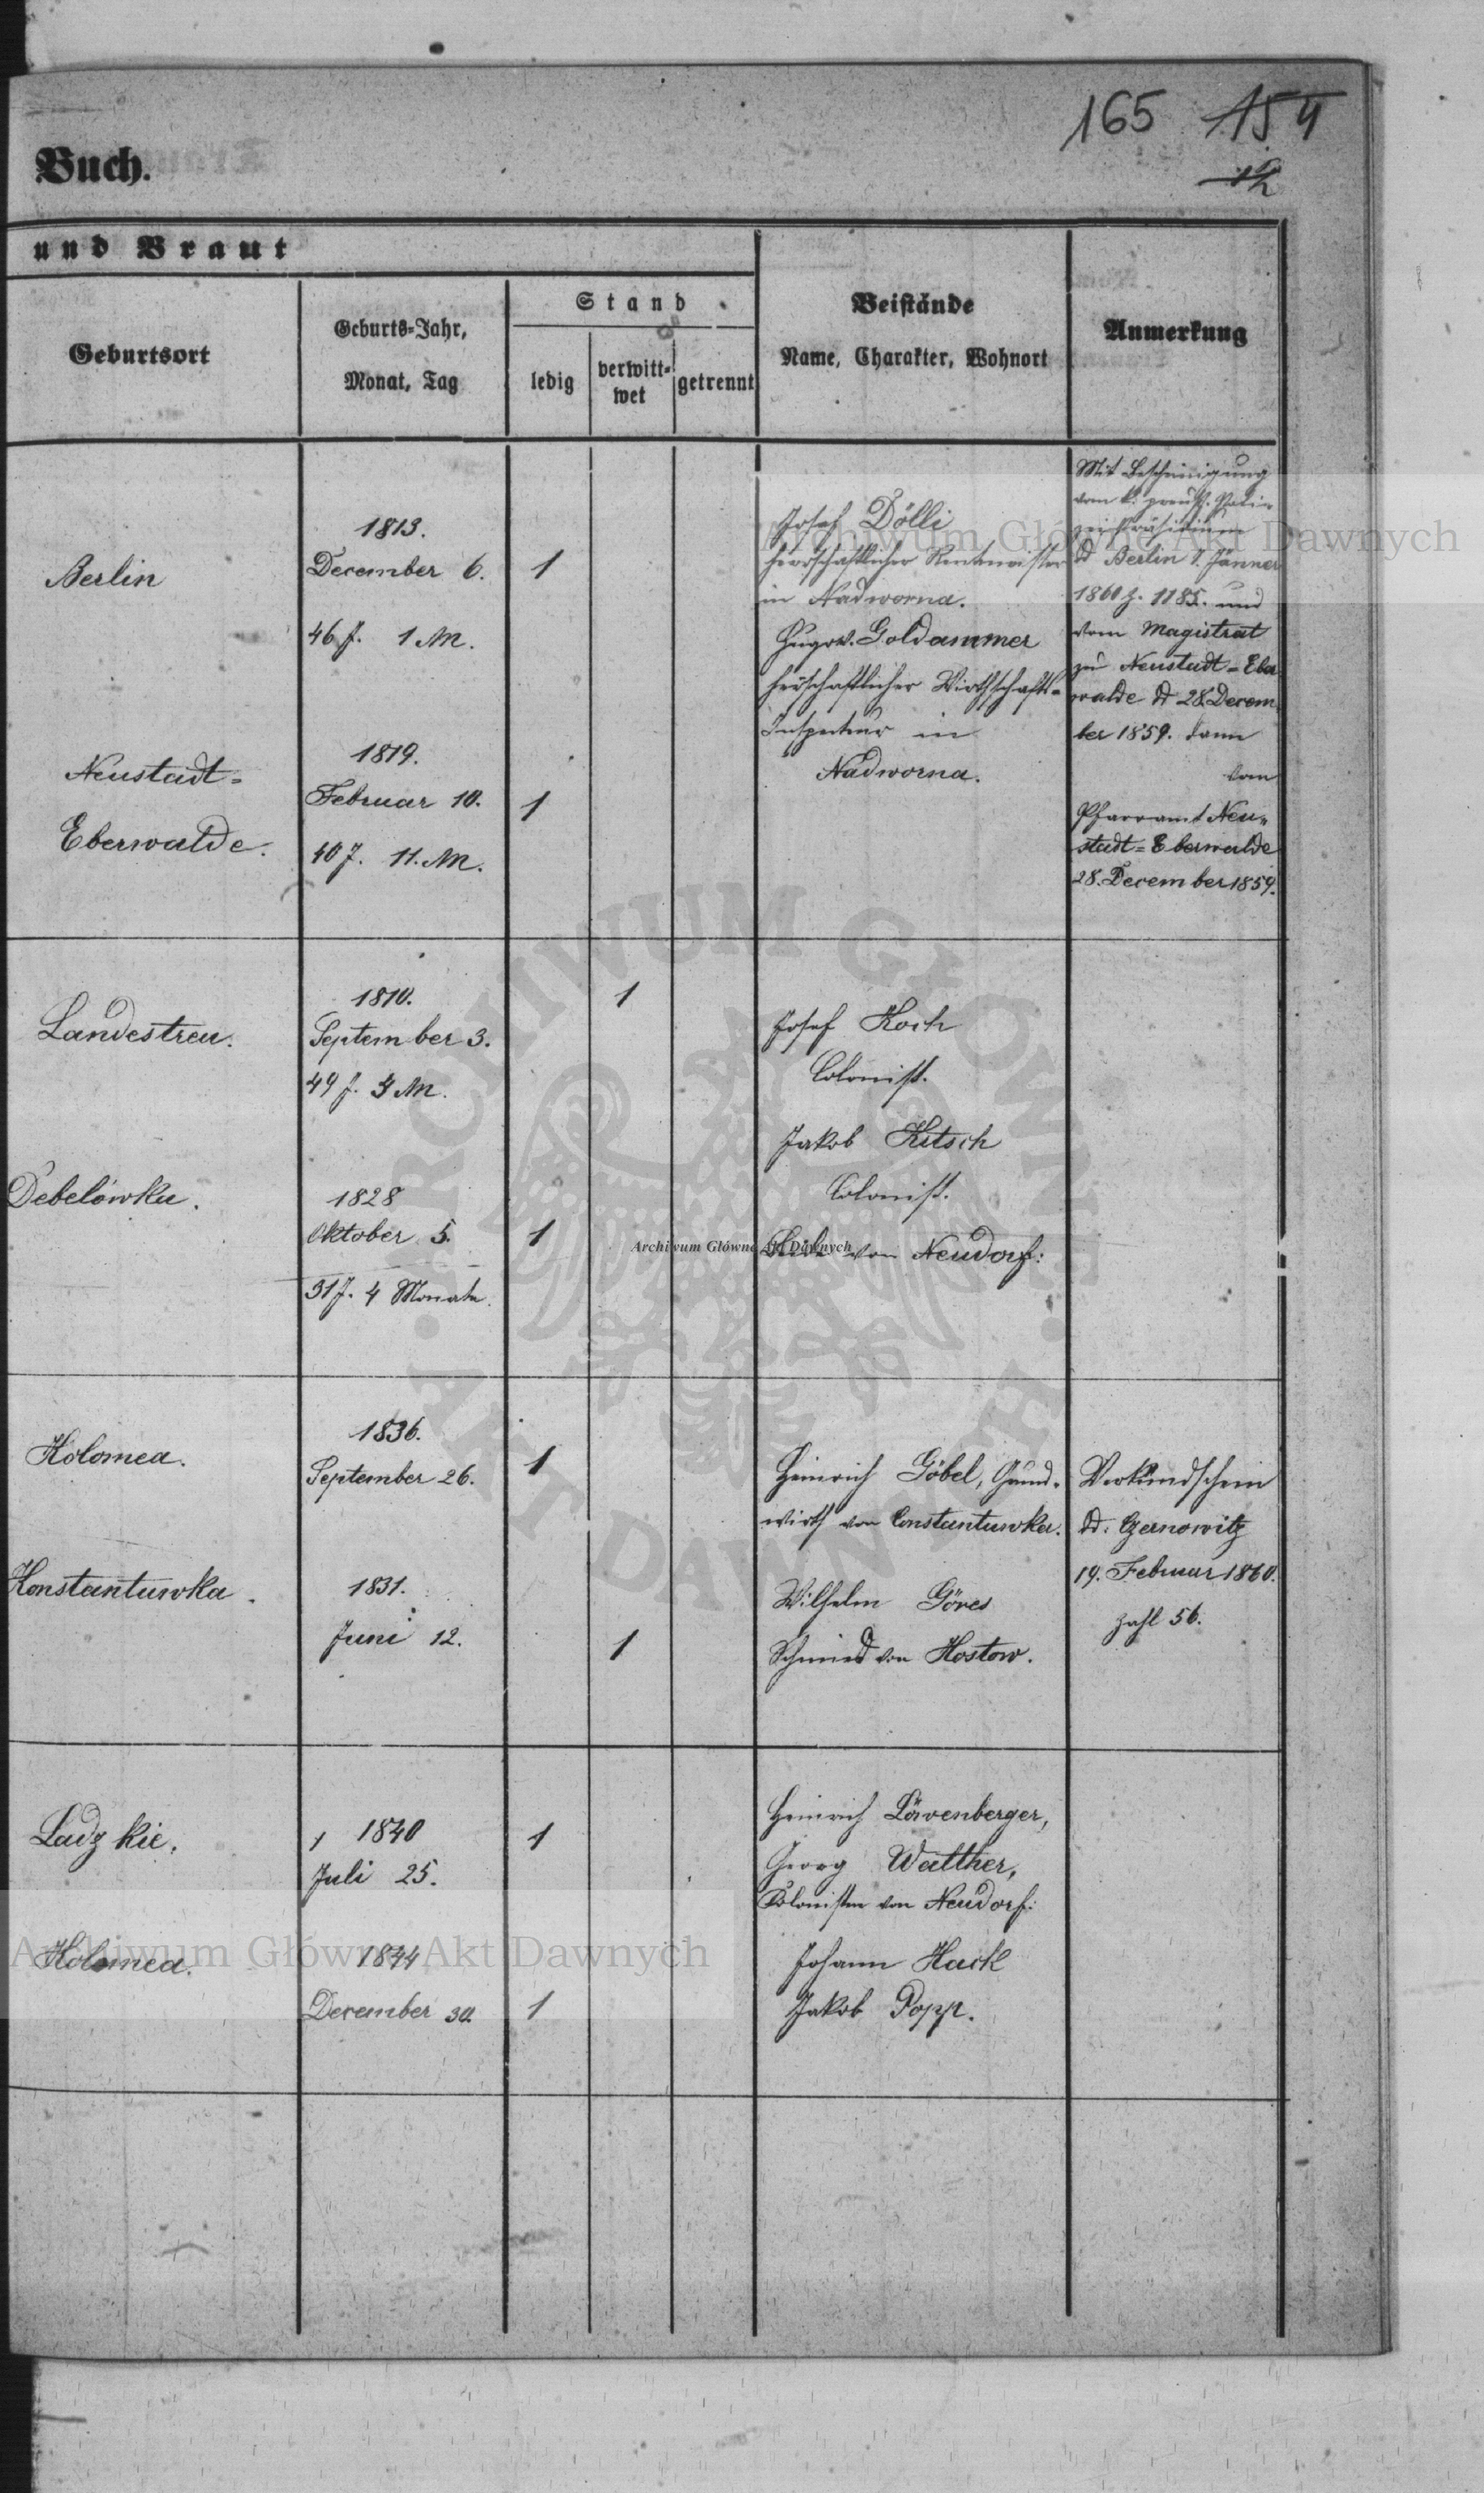 165 154
12
Buch.
und Braut
Geburtsort
Geburts-Jahr,
Monat, Tag
Stand
ledig
verwitt-
wet
getrennt
Beistände
Name, Charakter, Wohnort
Anmerkung
Berlin
1813.
December 6.
46 J. 1 M.
1
Neustadt-
Eberwalde.
1819.
Februar 10.
40 J. 11. M.
1
Josef Dölli
herrschaftlicher Rentmeister
in Nadworna.
Hugo v. Goldammer
herrschaftlicher Wirthschafts-
Inspecteur in
Nadworna.
Mit Bescheinigung
vom k. preuß. Poli-
zei Präsidium
d Berlin 7. Jänner
1860 z. 1185. und
vom Magistrat
zu Neustadt-Eber
walde d 28. Decem
ber 1859. dann
vom
Pfarramt Neu-
stadt-Eberwalde
28. December 1859.
Landestreu.
1810.
September 3.
49 J. 4 M.
1
Debelówka.
1828
Oktober 5.
31 J. 4 Monate.
1
Josef Koch
Colonist.
Jakob Kitsch
Colonist.
Beide von Neudorf.
Kolomea.
1836.
September 26.
1
Konstantuwka.
1831.
Juni 12.
1
Heinrich Göbel, Grund-
wirth von Constantuwka.
Wilhelm Göres
Schmied von Hostow.
Verkündschein
dd. Czernowitz
19. Februar 1860.
Zahl 56.
Ladzkie.
1840
Juli 25.
1
Kolomea.
1844
December 30.
1
Heinrich Lövenberger,
Georg Walther,
Kolonisten von Neudorf.
Johann Hack
Jakob Popp.
Archiwum Główne Akt Dawnych
Archiwum Główne Akt Dawnych
Archiwum Główne Akt Dawnych
ARCHIWUM GŁÓWNE
AKT DAWNYCH